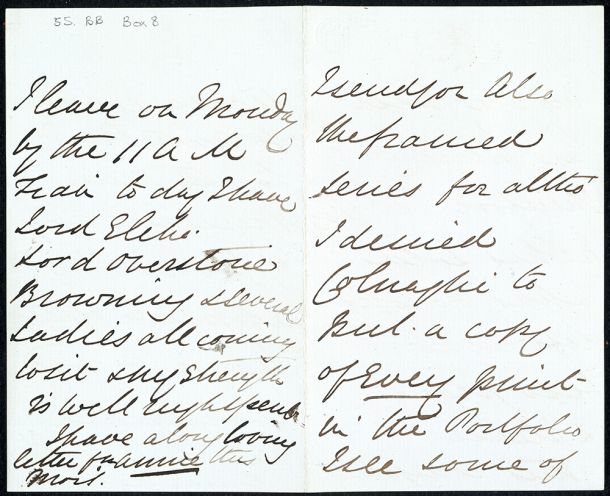 55. BB Box 8
I leave on Monday
by the 11 A M
Train to day I have
Lord Elcho
Lord Overstone
Browning & several
Ladies all coming
to sit & my strength
is well nigh spent
I have a long loving
letter from Annie this
Morg.
I send for Also
the framed
series for altho
I desired
Colnaghi to
Put a copy
of Every print
in the Portfolio
I see some of